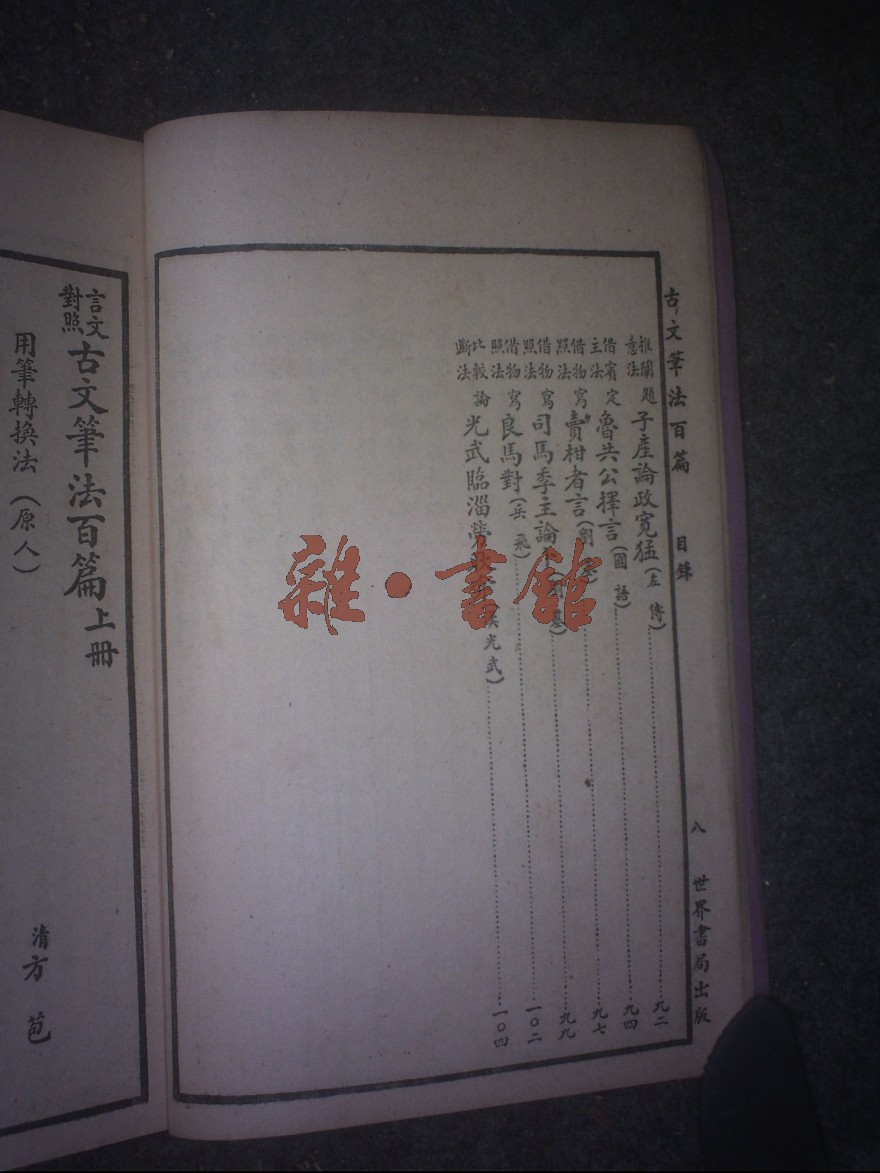 古文筆法百篇 目錄 八 世界書局出版
推闡題意法 子產論政寬猛(左傳)……九二
借賓定主法 魯共公擇言(國語)……九四
借物寫照法 賣柑者言(劉基)……九七
借物寫照法 司馬季主論 基)……九九
借物寫照法 良馬對(岳飛)……一〇二
比較論斷法 光武臨淄勞 漢光武)……一〇四
雜·書館
言文對照古文筆法百篇上冊
用筆轉換法(原人) 清方苞